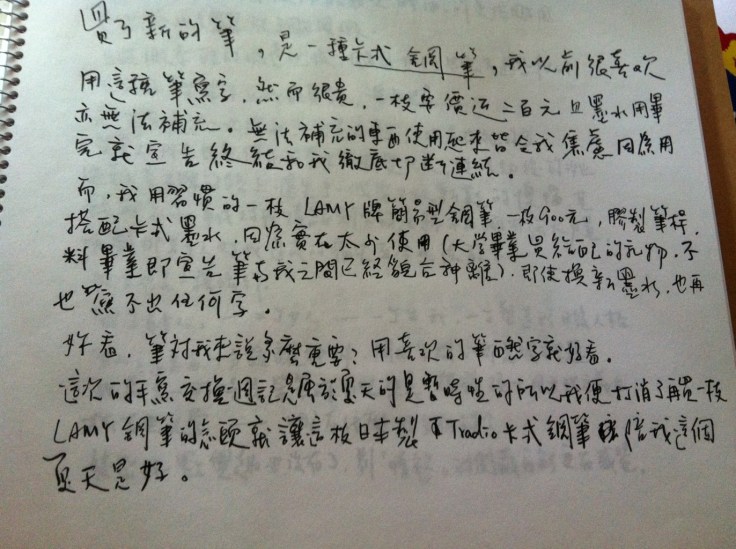 買了新的筆，是一種卡式鋼筆，我以前很喜歡
用這種筆寫字，然而很貴，一枝要價近二百元且墨水用畢
亦無法補充。無法補充的東西使用起來皆令我焦慮因為用
完就宣告終結和我徹底切斷連結。
而，我用習慣的一枝 LAMY牌簡易型鋼筆一枝900元，膠製筆桿，
搭配卡式墨水，因為實在太少使用（大學畢業買給自己的禮物，不
料畢業即宣告筆與我之間已經貌合神離），即使換新墨水，也再
也寫不出任何字。
好看，筆對我來說多麼重要？用喜歡的筆寫字就好看。
這次的手寫交換週記是屬於夏天的是暫時性的所以我便打消了再買一枝
LAMY 鋼筆的念頭就讓這枝日本製 Tradio卡式鋼筆陪我這個
夏天是好。